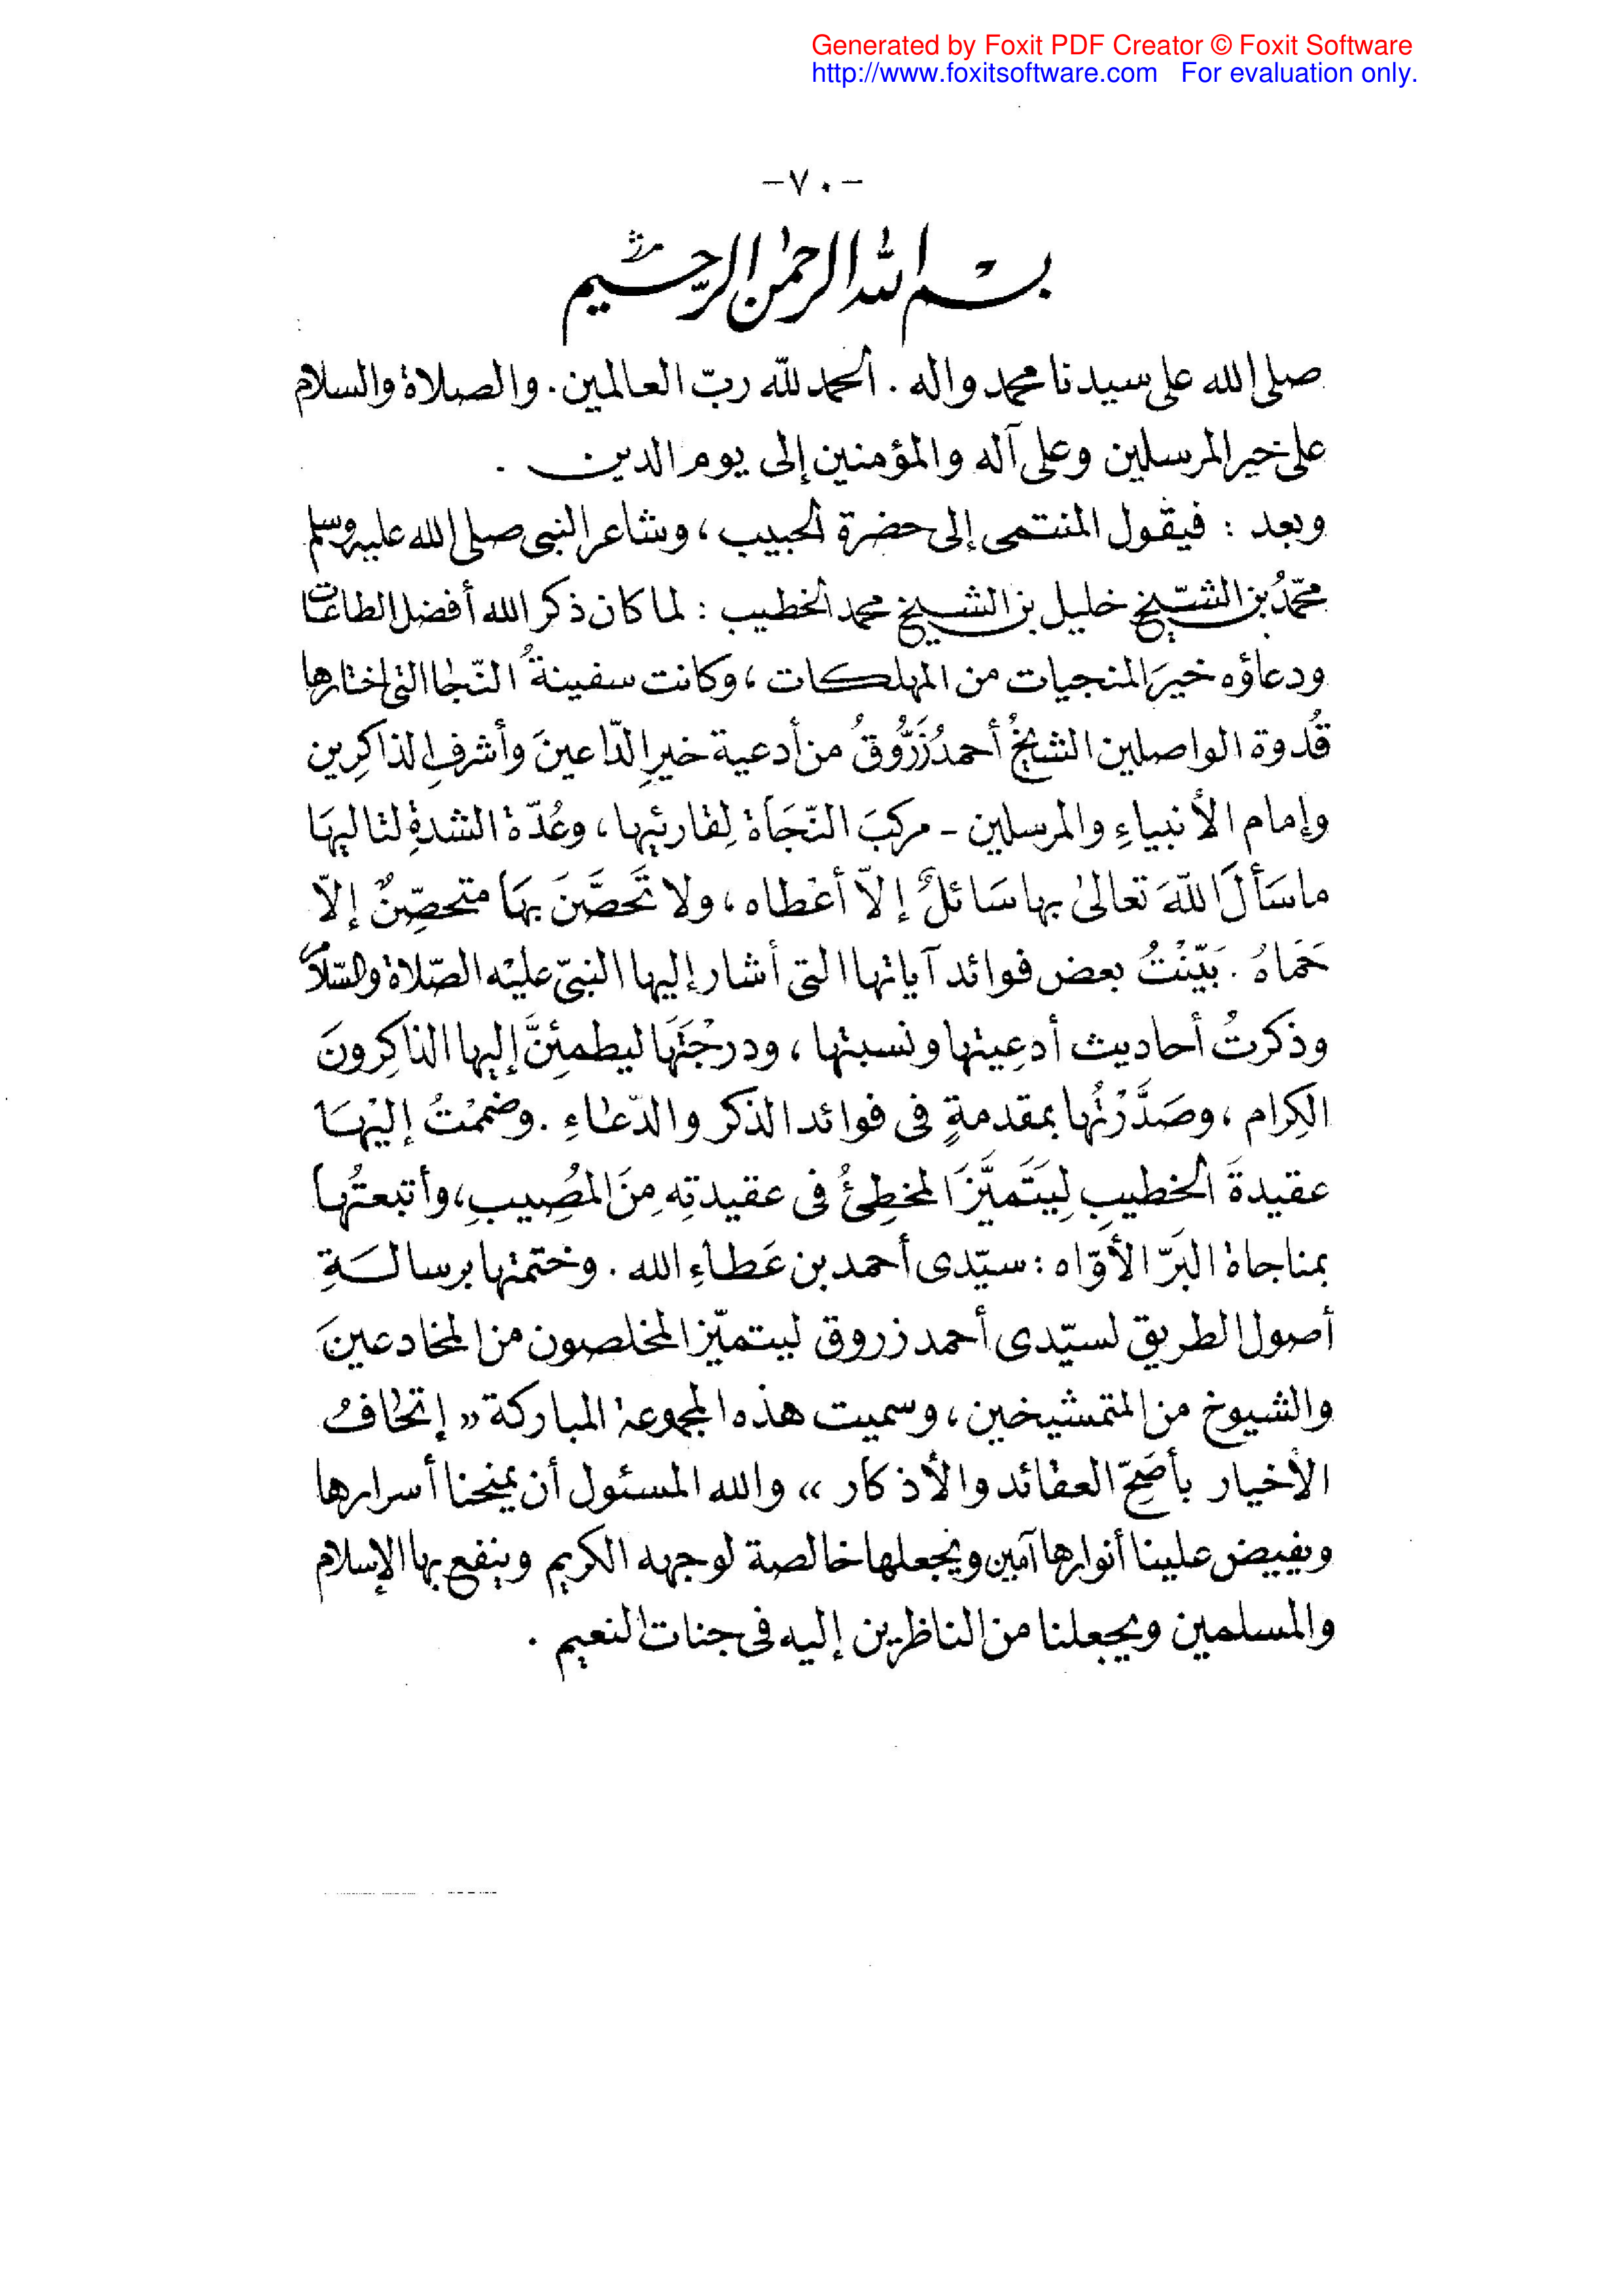 Generated by Foxit PDF Creator © Foxit Software
http://www.foxitsoftware.com For evaluation only.
-٧٠-
بسم الله الرحمن الرحيم
صلى الله على سيدنا محمد واله . الحمد لله ربّ العالمين . والصلاة والسلام
على خير المرسلين وعلى آله والمؤمنين إلى يوم الدين .
وبعد : فيقول المنتمى إلى حضرة الحبيب ، وشاعر النبى صلى الله عليه وسلم
محمّدُ بن الشّيخ خليل بن الشيخ محمد الخطيب : لما كان ذكر الله أفضل الطاعات
ودعاؤه خيرَ المنجيات من المهلكات ، وكانت سفينةُ النّجا التى اختارها
قُدوة الواصلين الشيخُ أحمدُ زَرُّوقُ من أدعية خيرِ الدّاعينَ وأشرفِ الذاكِرِين
وإمام الأنبياءِ والمرسلين - مركبَ النّجَاة لِقارئيها ، وعُدّة الشدةِ لتاليهَا
ما سَأَلَ اللّهَ تعالىٰ بها سَائلٌ إلاّ أعْطاه ، ولا تَحَصَّنَ بهَا متحصِّنٌ إلاّ
حَمَاهُ . بَيّنْتُ بعض فوائد آياتها التى أشار إليها النبىّ عليْه الصّلاة والسّلام
وذكرتُ أحاديث أدعِيتها ونسبتها ، ودرجْتَهَا ليطمئِنَّ إليها الذاكِرونَ
الكِرام ، وصَدَّرْتُها بمقدمةٍ فى فوائد الذكر والدّعاءِ . وضممْتُ إليْهَا
عقيدةَ الخطيبِ لِيَتَميَّزَ المخطِئُ فى عقيدتِه مِنَ المُصِيبِ ، وأتبعتُها
بمناجاة البَرّ الأوّاه : سيّدى أحمد بن عَطاءِ الله . وختمتها برسالَةِ
أصول الطريق لسيّدى أحمد زروق ليتميّز المخلصون من المخادعينَ
والشيوخ من المتمشيخين ، وسميت هذه المجموعة المباركة « إتحافُ
الأخيار بأصَحّ العقائد والأذكار » والله المسئول أن يمنحنا أسرارها
ويفيض علينا أنوارها آمين ويجعلها خالصة لوجهه الكريم وينفع بها الإسلام
والمسلمين ويجعلنا من الناظرين إليه فى جنات النعيم .